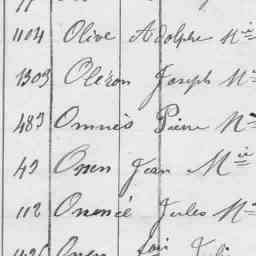 1104 Olive Adolphe Mie
1303 Oléron Joseph Mie
483 Omnès Pierre Mie
43 Onen Jean Mie
112 Onencé Jules Mie